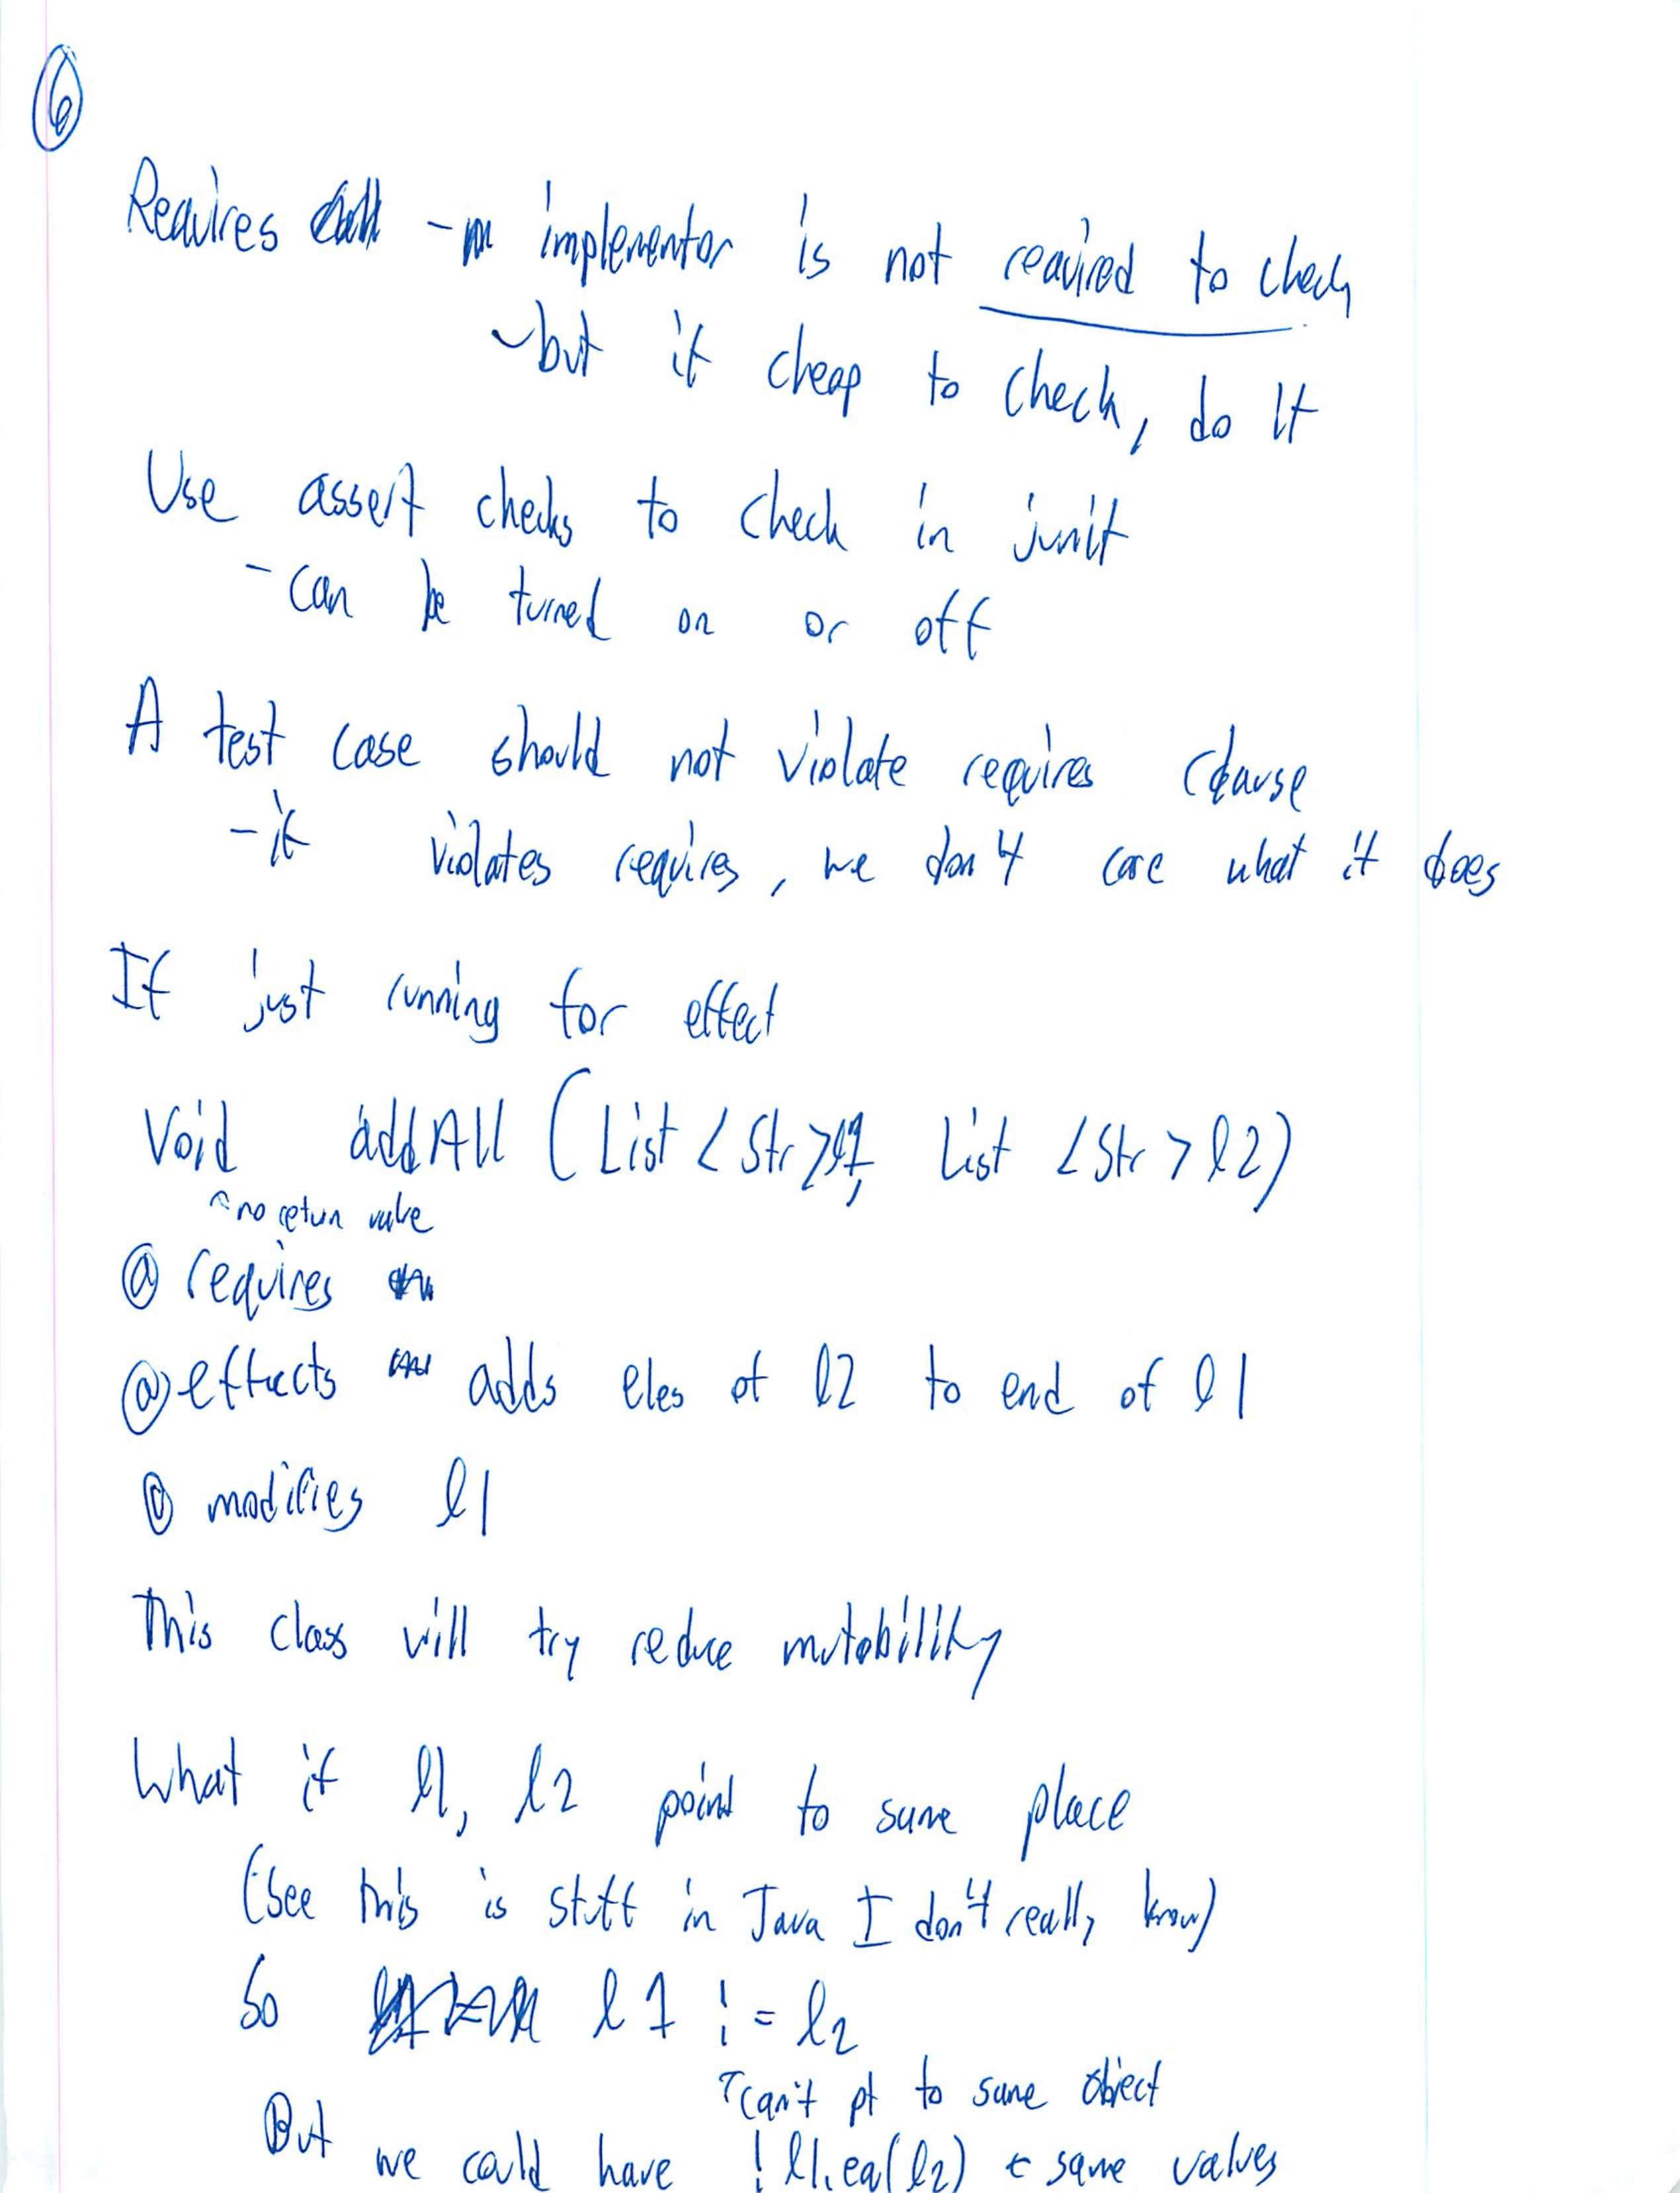 6
Requires - implementor is not required to check
- but if cheap to check, do it
Use assert checks to check in junit
- can be turned on or off
A test case should not violate requires clause
- if violates requires, we don't care what it does
If just running for effect
Void addAll (List <Str> l1, List <Str> l2)
^ no return value
@ requires
@ effects adds eles of l2 to end of l1
@ modifies l1
This class will try reduce mutability
What if l1, l2 point to same place
(See this is stuff in Java I don't really know)
So l1 != l2
↑ can't pt to same object
But we could have ! l1.eq(l2) ← same values